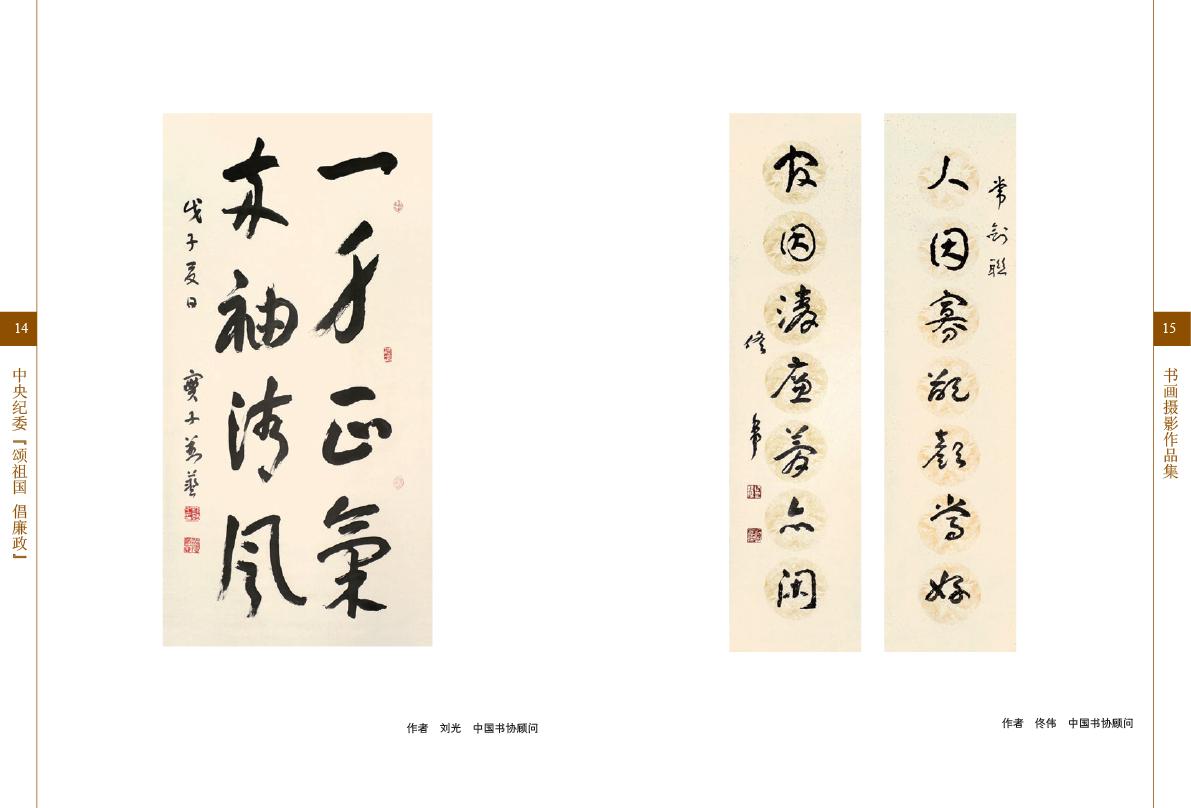 14
中央纪委『颂祖国 倡廉政』
一身正氣
兩袖清风
戊子夏日
作者 刘光 中国书协顾问
人因寡欲顏常好
因廉夢亦闲
佟韋
作者 佟伟 中国书协顾问
15
书画摄影作品集